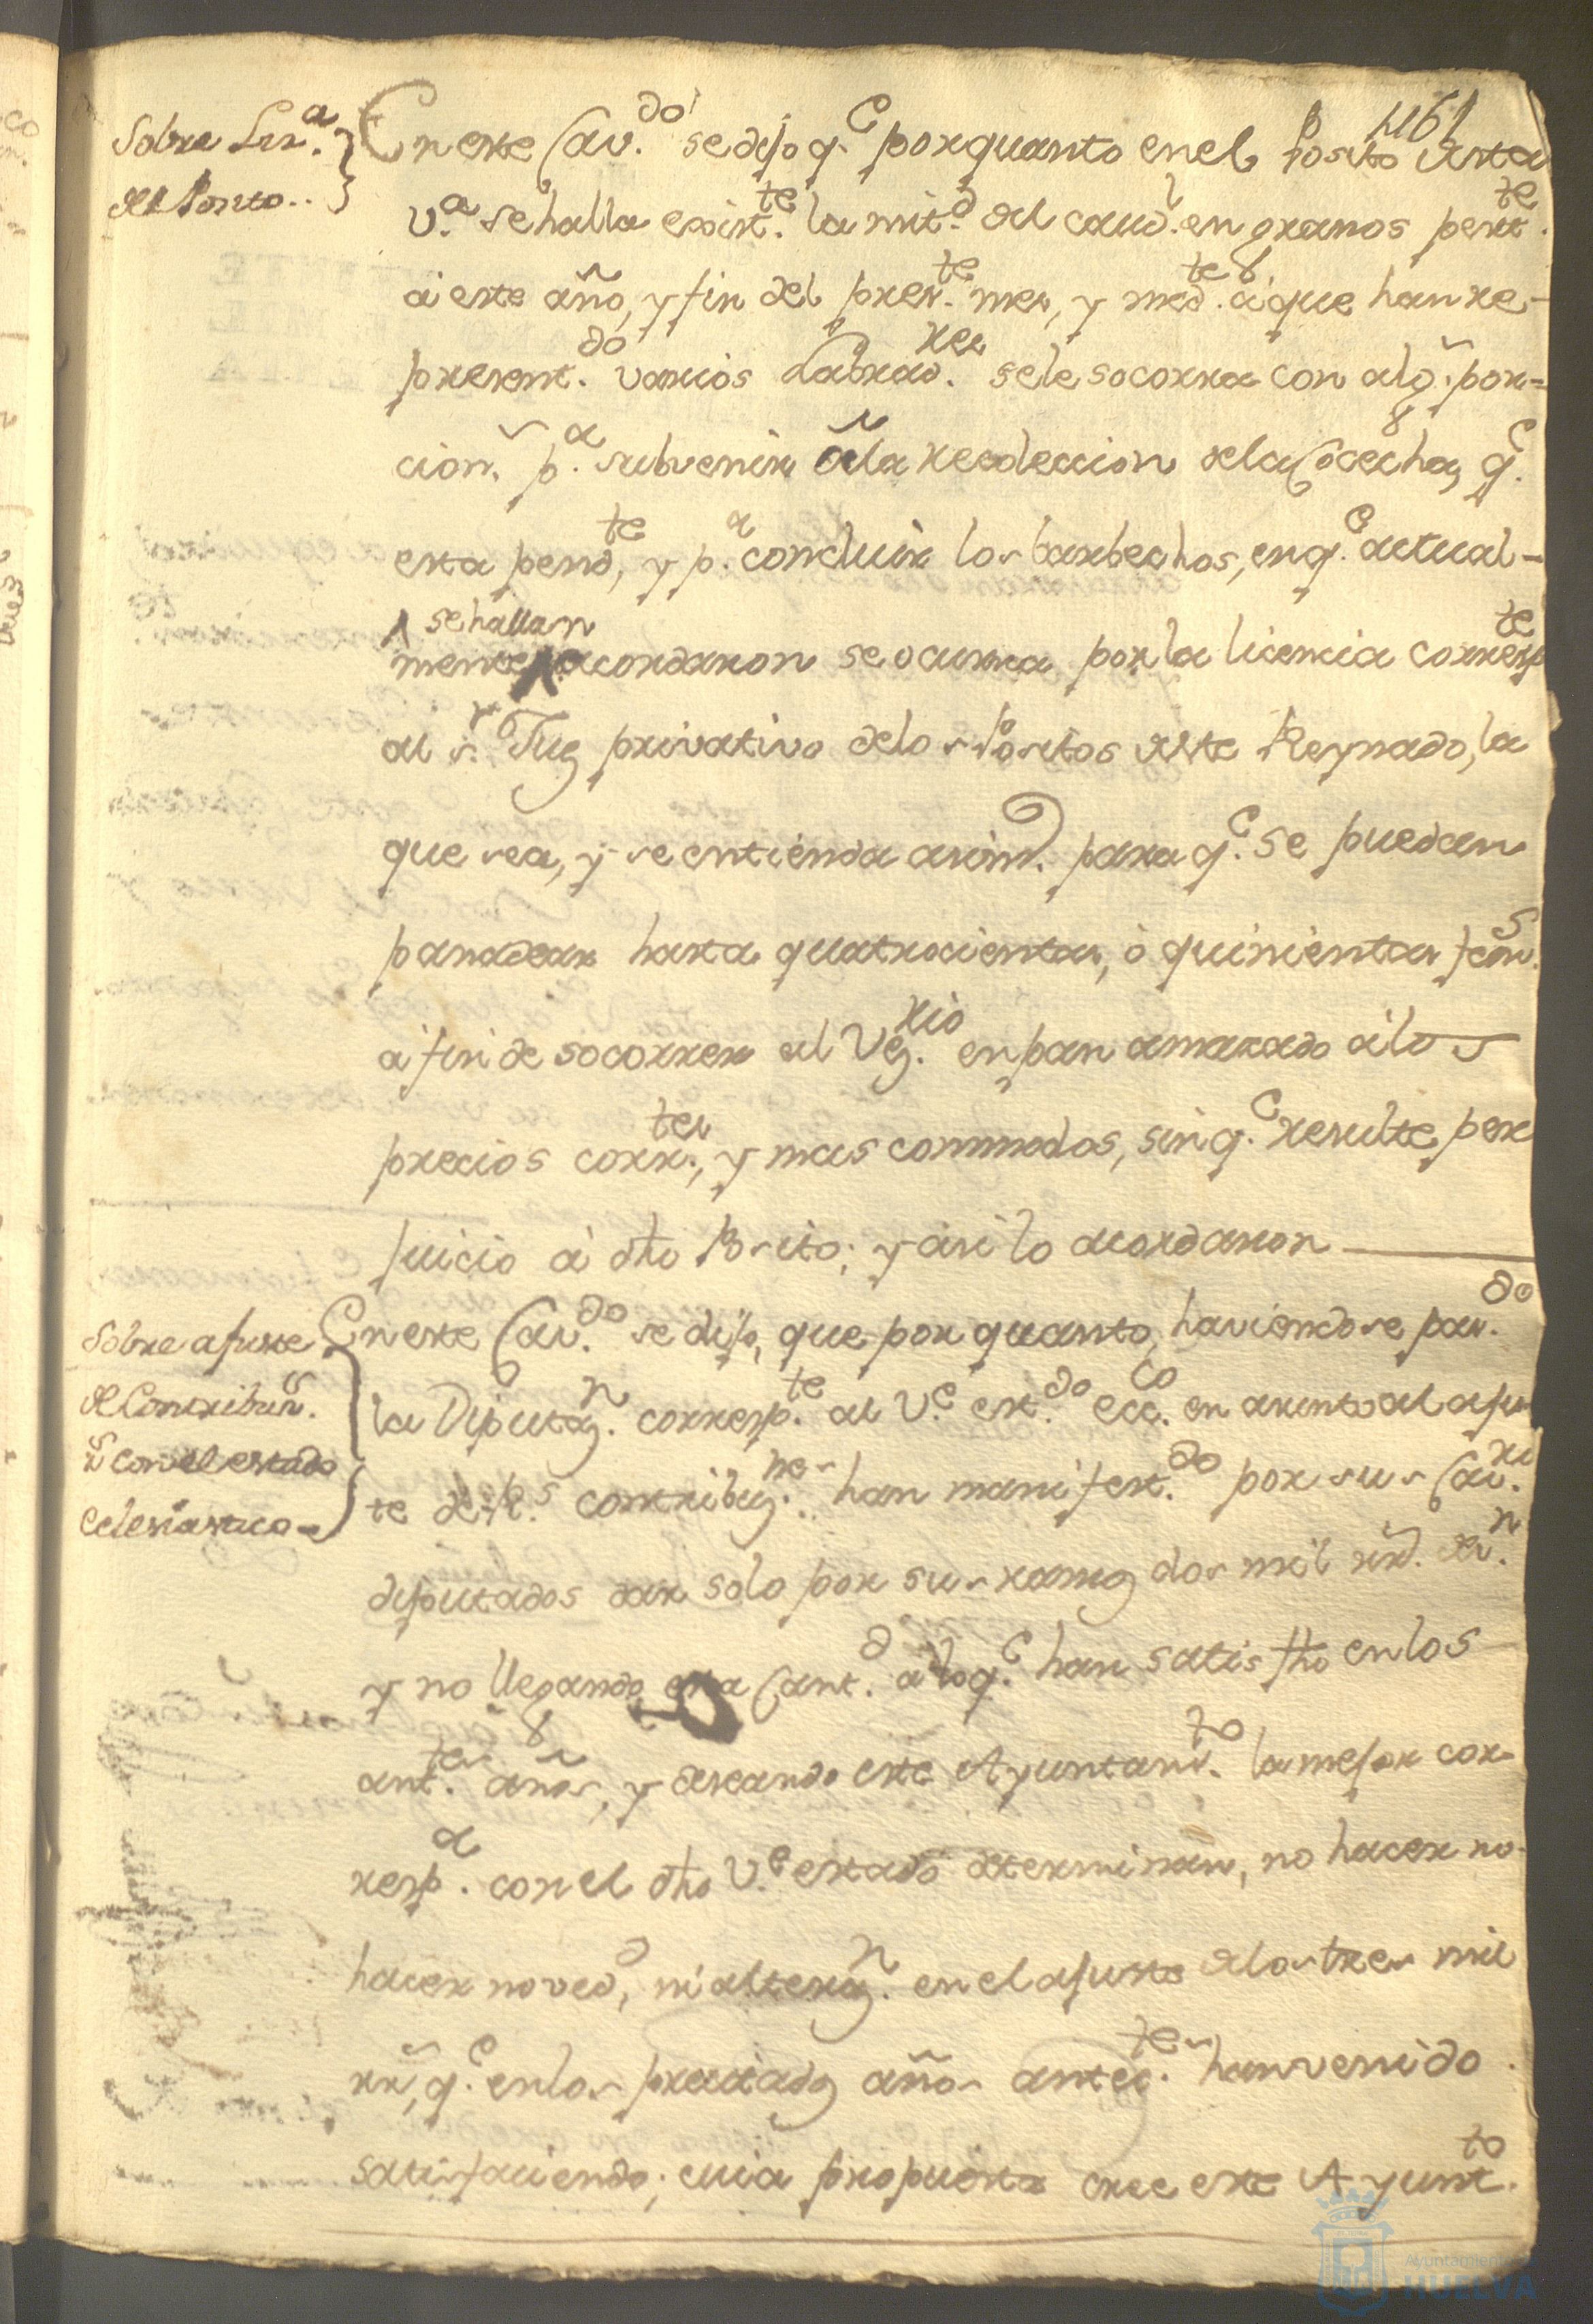 461
Sobre Liz.a
del Posito..
En este Cav.do se dijo q.e por quanto en el Posito desta
V.a se halla exist.te la mit.d del caud.l en granos pert.te
â este año, y fin del pres.te mes, y med.te â que han re-
present.do varios Labrad.res se le socorra con alg.s por-
cion.s p.a subvenir â la recoleccion de la Cocecha, q.e
esta pend.te, y p.a concluir los barbechos, en q.e actual-
se hallan
mente acordaron se ocurra por la licencia corresp.te
al s.r Juez privativo de los Positos deste Reynado, la
que sea, y se entienda asim.o para q.e se puedan
panadear hasta quatrocientas, ô quinientas fan.s
a fin de socorrer al Vez.rio en pan amasado â los
precios corr.tes, y mas commodos, sin q.e resulte per
juicio â dho Posito; y asi lo acordaron
Sobre ajuste
de Contribuz.s
con el estado
eclesiastico
En este Cav.do se dijo, que por quanto, haviendose pas.do
la Diputaz.n corresp.te al V.e est.do ecc.co en asunto al ajus
te de R.s contribuz.nes han manifest.do por sus Cav.ros
diputados dar solo por sus ramos dos mil rr.s de v.n
y no llegando esta Cant.d a lo q.e han satisfho en los
ant.tes años, y deseando este Ayuntam.to la mejor cor-
resp.a con el dho V.e estado determinan, no hacer no-
hacer noved.d, ni alteraz.n en el ajuste de los tres mil
rr.s, q.e en los precitados años antec.tes han venido
satisfaciendo; cuia propuesta cree este Ayunt.to
Ayuntamiento
HUELVA